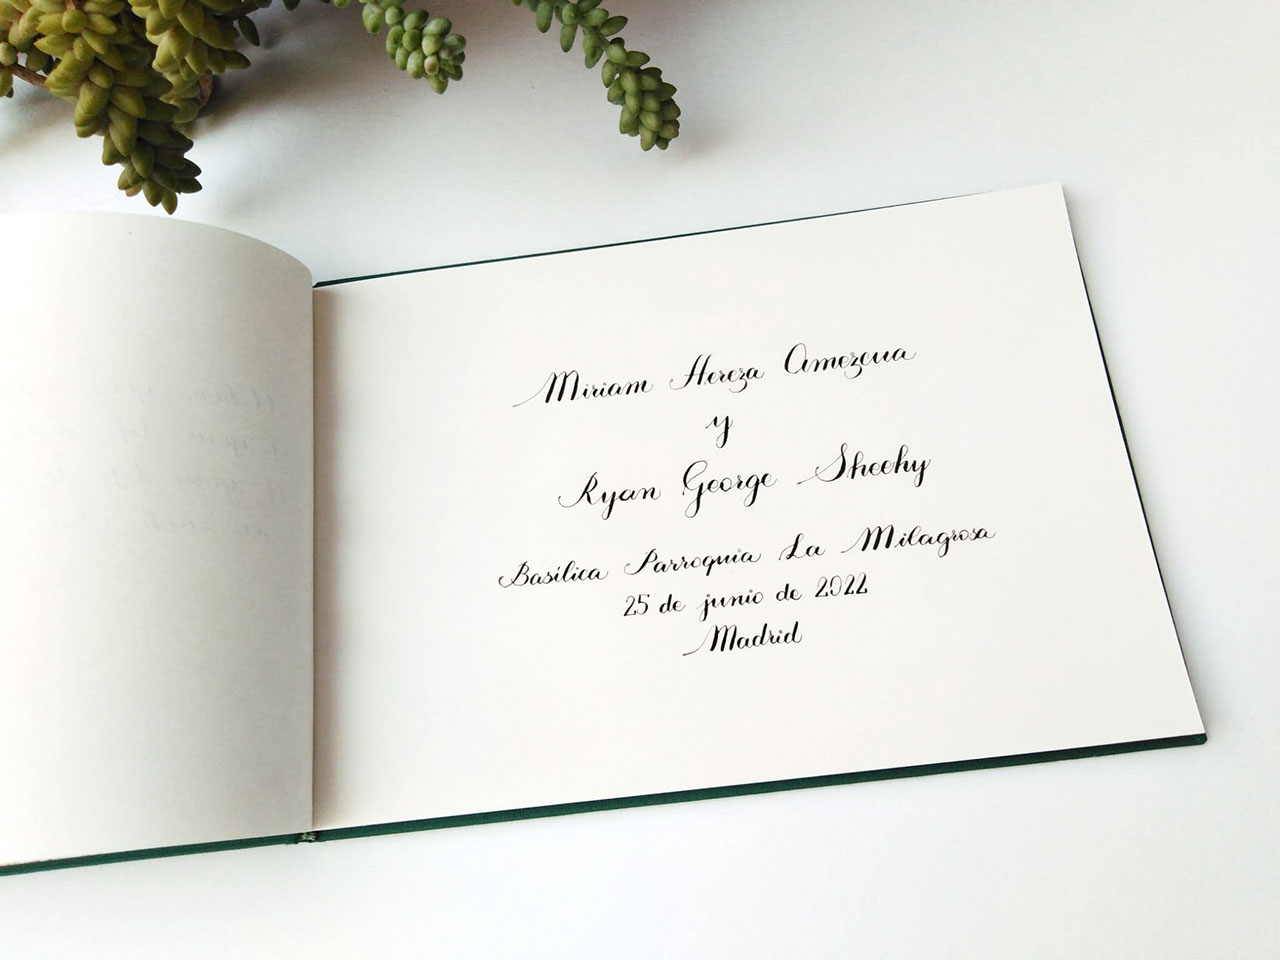 Miriam Hereza Amezcua
y
Ryan George Sheehy
Basílica Parroquia La Milagrosa
25 de junio de 2022
Madrid